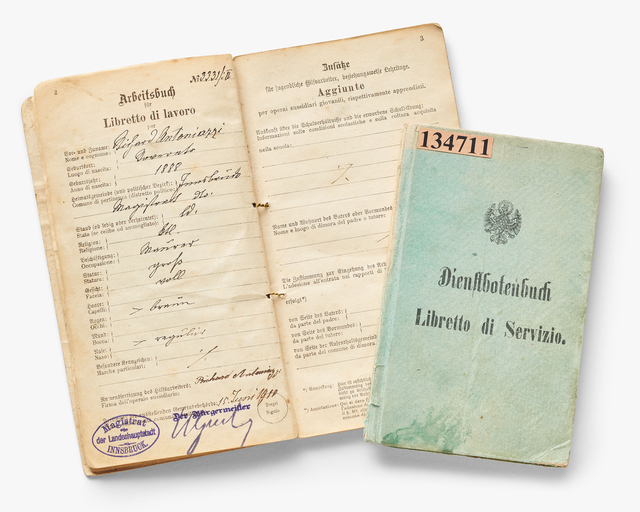 2
№ 3331/
Arbeitsbuch
für
Libretto di lavoro
per
Vor- und Zuname:
Nome e cognome:
Richard Antoniazzi
Geburtsort:
Luogo di nascita:
Rovereto
Geburtsjahr:
Anno di nascita:
1888
Heimatgemeinde (und politischer Bezirk):
Comune di pertinenza (distretto politico):
Innsbruck
Magistrat
Stand (ob ledig oder verheiratet):
Stato (se celibe od ammogliato):
ld.
Religion:
Religione:
Beschäftigung:
Occupazione:
Maurer
Statur:
Statura:
groß
Gesicht:
Faccia:
voll
Haare:
Capelli:
braun
Augen:
Occhi:
Mund:
Bocca:
regulär
Nase:
Naso:
Besondere Kennzeichen:
Marche particolari:
Namensfertigung des Hilfsarbeiters:
Firma dell'operaio sussidiario:
Richard Antoniazzi
15. Juni 1910
Der Bürgermeister
Magistrat
der Landeshauptstadt
INNSBRUCK.
3
Zusätze
für jugendliche Hilfsarbeiter, beziehungsweise Lehrlinge.
Aggiunte
per operai sussidiari giovanili, rispettivamente apprendisti.
Auskunft über die Schulverhältnisse und die erworbene Schulbildung:
Informazioni sulle condizioni scolastiche e sulla coltura acquisita
nella scuola:
Name und Wohnort des Vaters oder Vormundes
Nome e luogo di dimora del padre o tutore:
Die Zustimmung zur Eingehung des
L'adesione all'entrata nei rapporti di
erfolgt*)
von Seite des Vaters:
da parte del padre:
von Seite des Vormundes
da parte del tutore:
von Seite der Aufenthaltsgemeinde
da parte del comune di dimora
134711
Dienstbotenbuch
Libretto di Servizio.